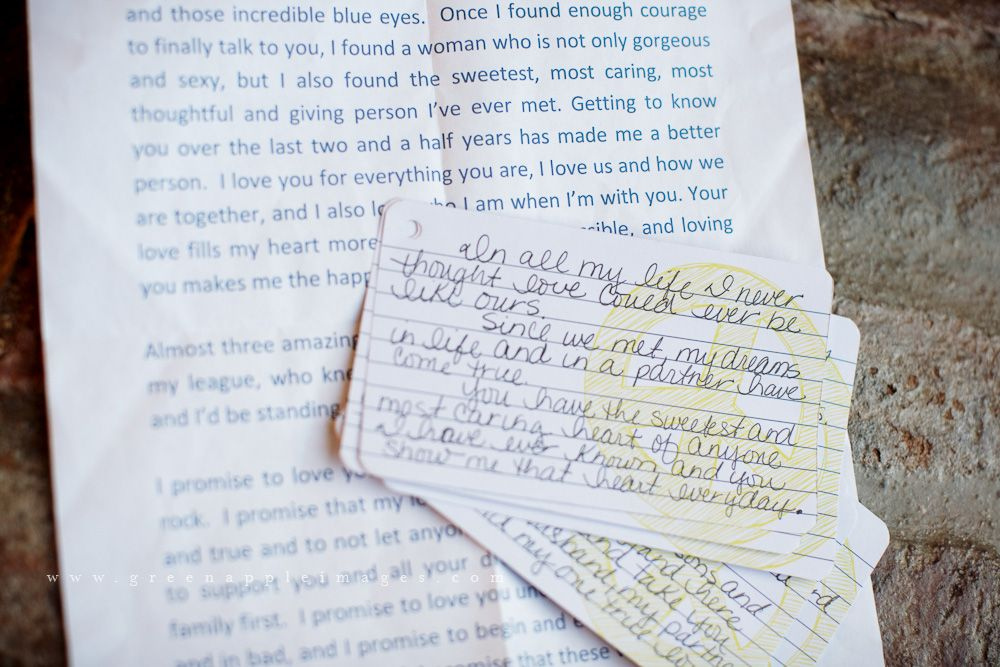 and those incredible blue eyes. Once I found enough courage
to finally talk to you, I found a woman who is not only gorgeous
and sexy, but I also found the sweetest, most caring, most
thoughtful and giving person I've ever met. Getting to know
you over the last two and a half years has made me a better
person. I love you for everything you are, I love us and how we
are together, and I also I am when I'm with you. Your
love fills my heart more and loving
you makes me the
Almost three
my league, who
and I'd be standing
I promise to love
rock. I promise that my
and true and to not let
to support you and all your
family first. I promise to love you
and in bad, and I promise to begin and
promise that these
In all my life I never
thought love could ever be
like ours.
Since we met, my dreams
in life and in a partner have
come true.
You have the sweetest and
most caring heart of anyone
I have ever known and you
show me that heart everyday.
and
and take you
my partner
my one true
www.greenappleimages.com